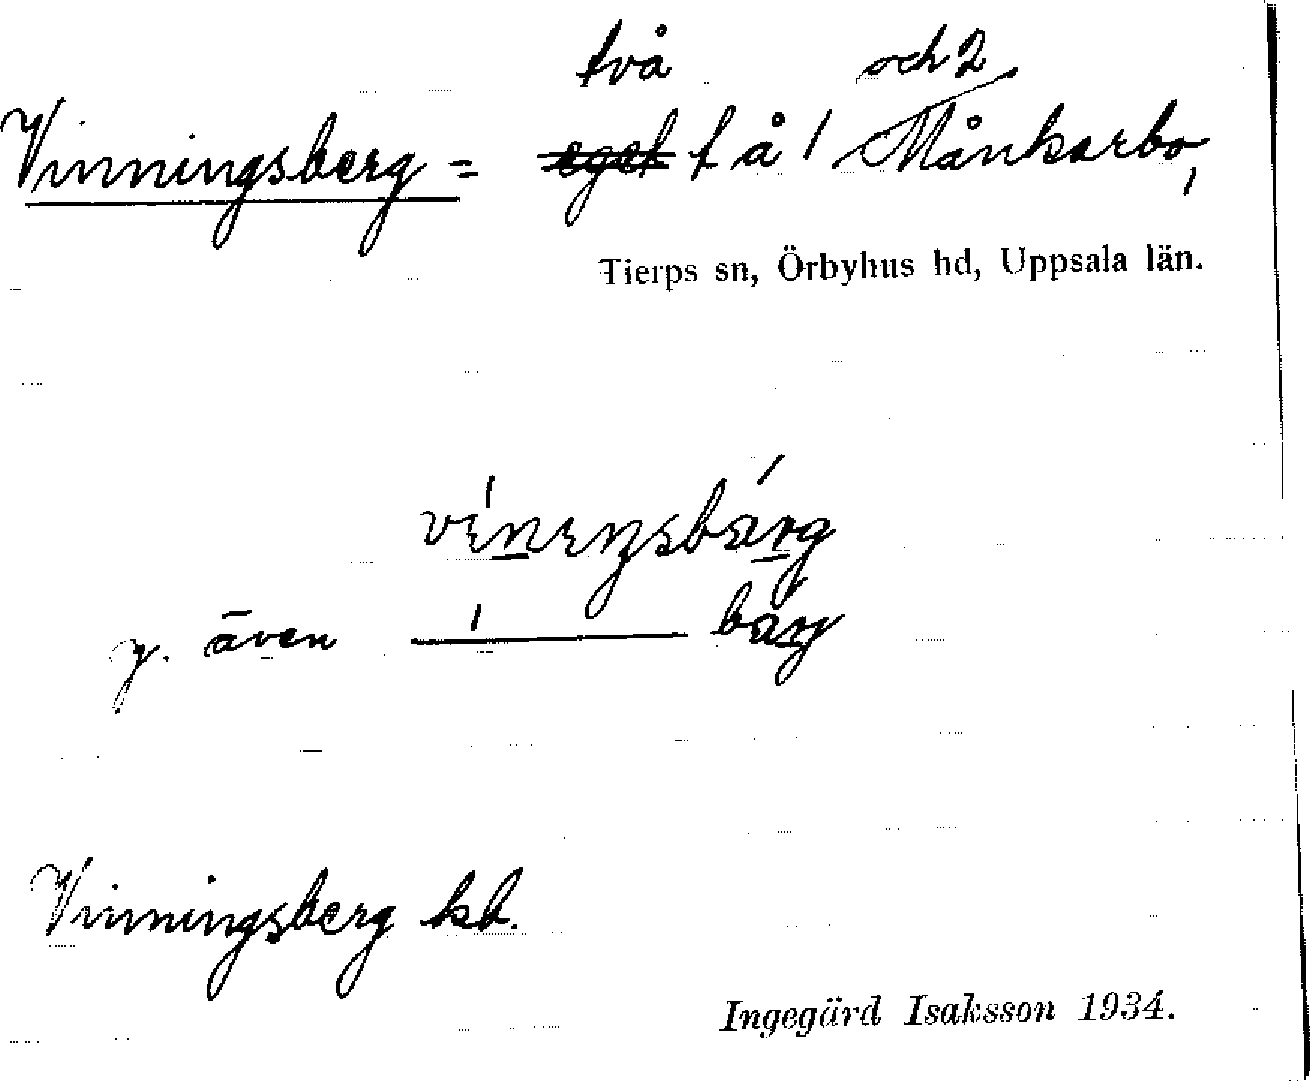 två och 2
Vinningsberg = eget f å 1 Månkarbo,
Tierps sn, Örbyhus hd, Uppsala län.
även
Vinningsberg kb.
Ingegärd Isaksson 1934.